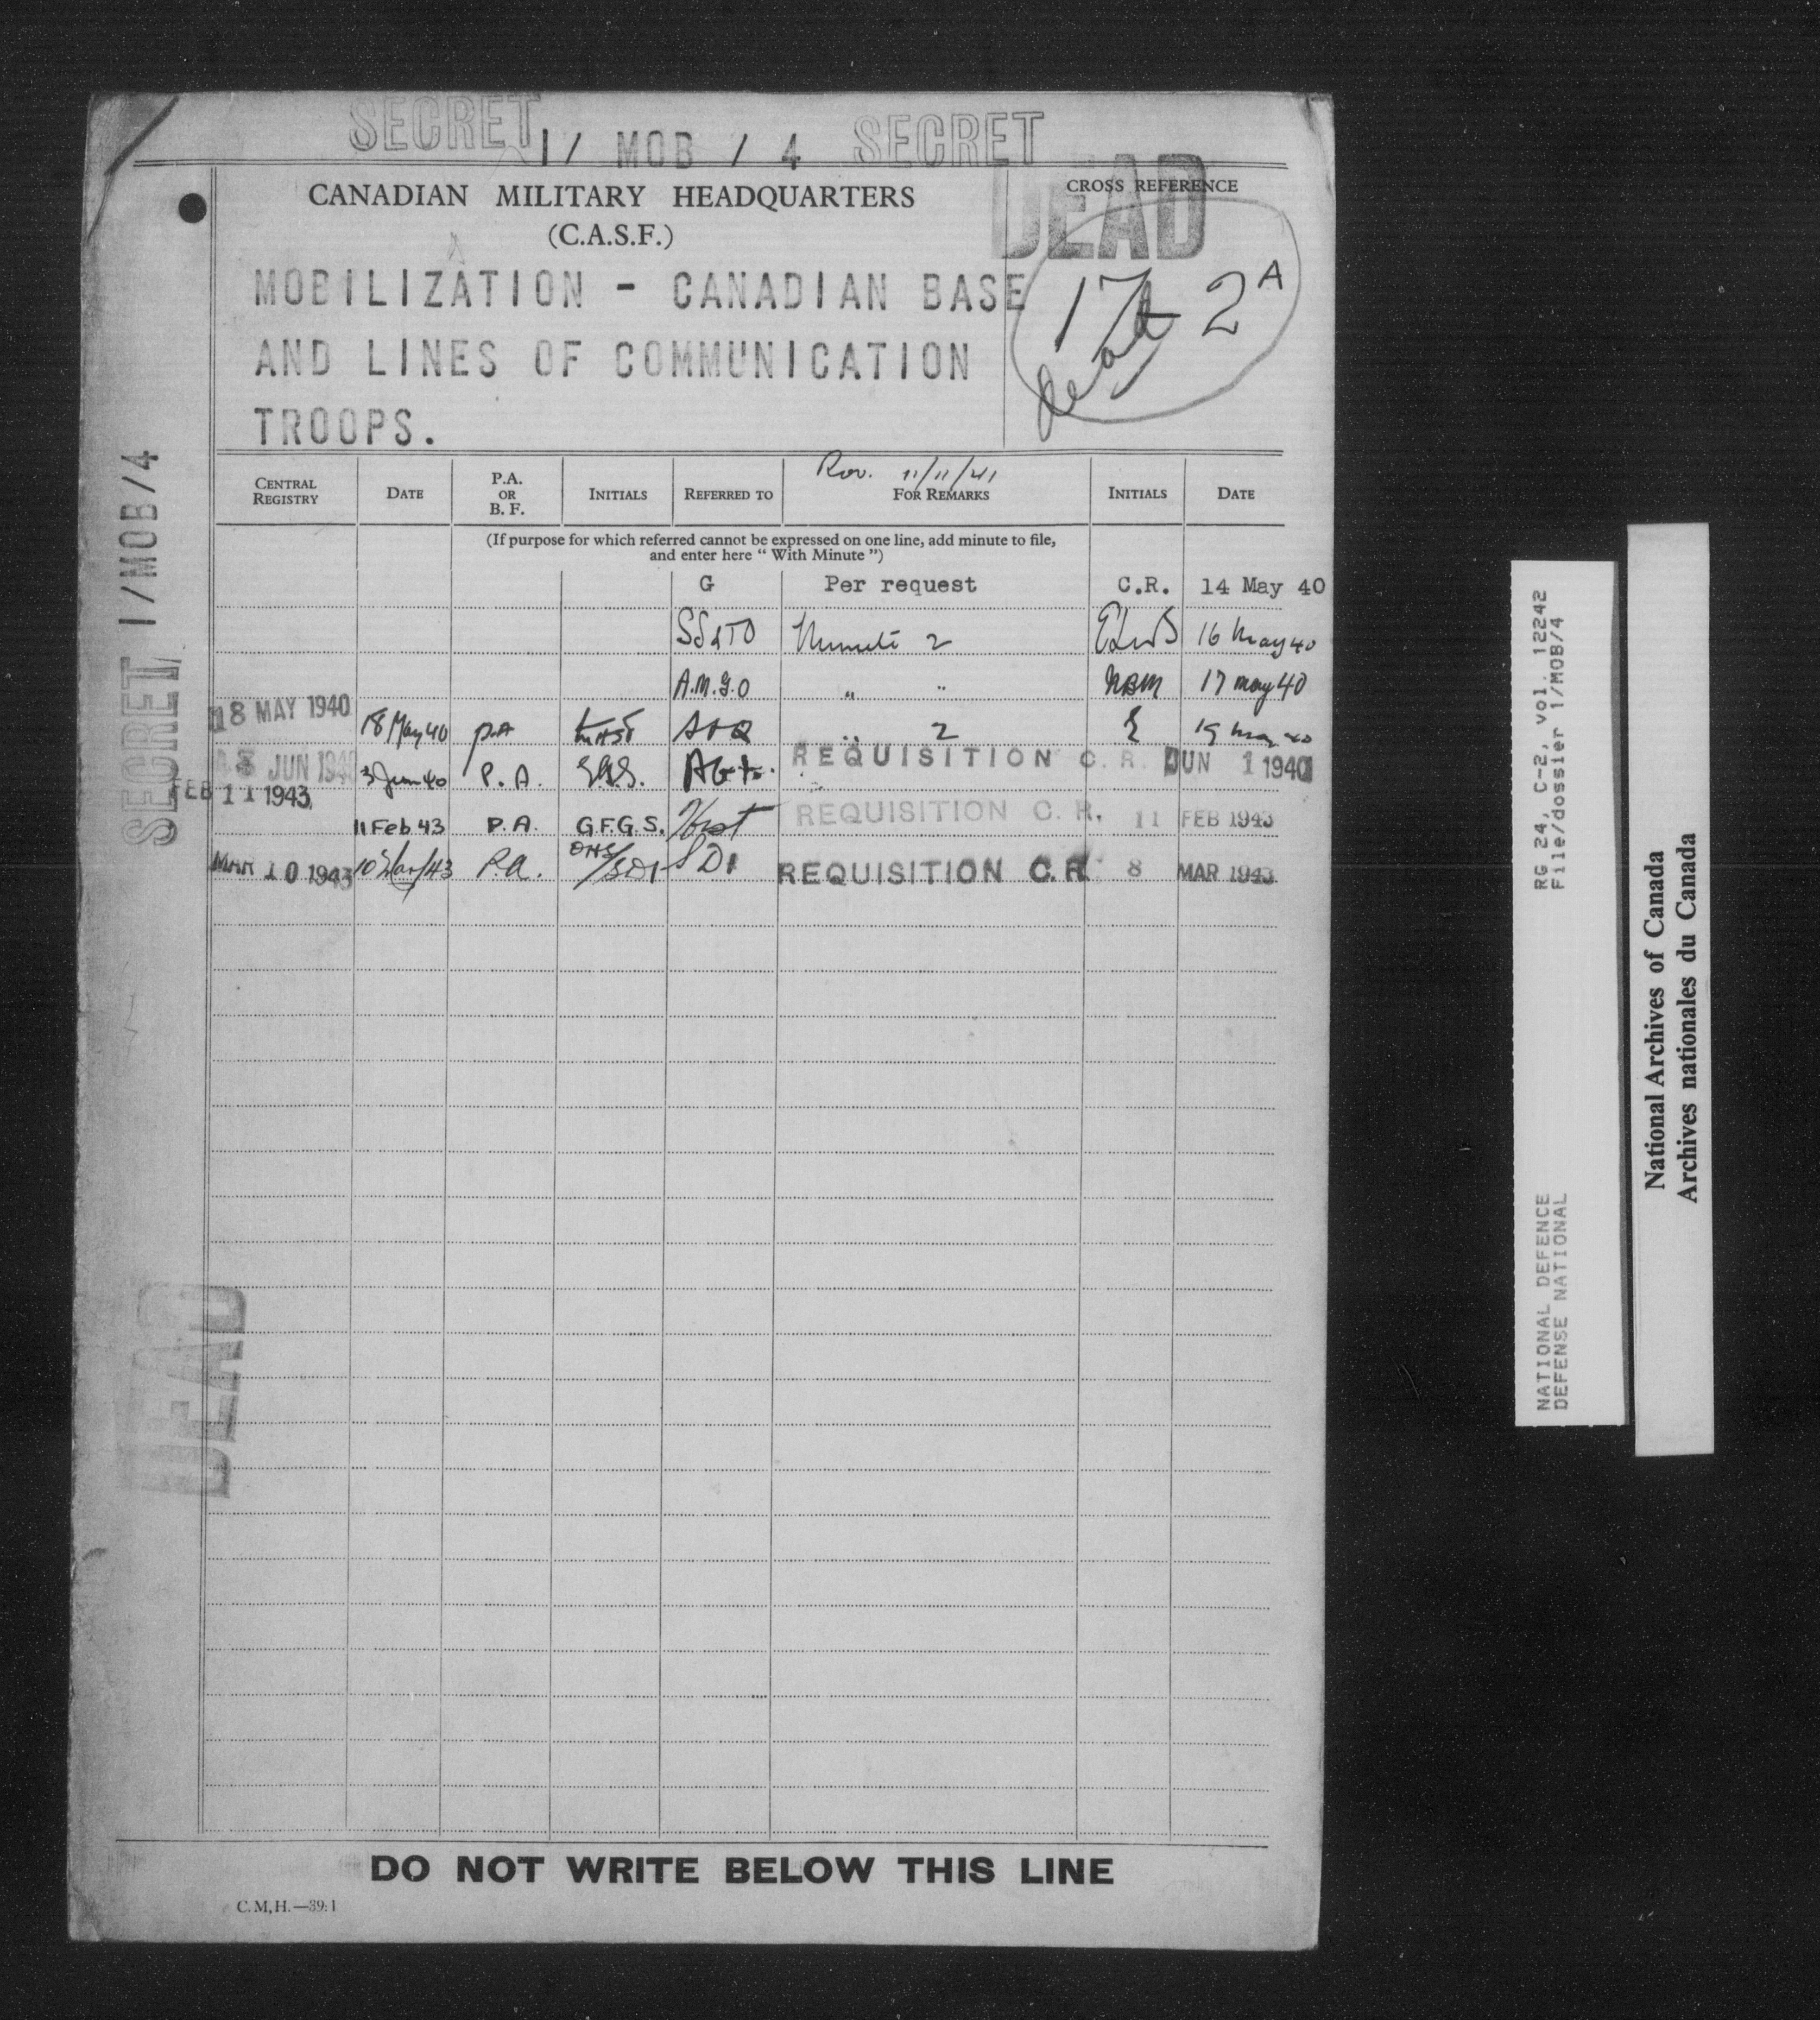 SECRET 1/ MOB / 4 SECRET
DEAD
CANADIAN MILITARY HEADQUARTERS
(C.A.S.F.)
CROSS REFERENCE
MOBILIZATION - CANADIAN BASE
AND LINES OF COMMUNICATION
TROOPS.
17 2A
dead
SECRET 1/MOB/4
11/11/41
CENTRAL REGISTRY DATE P.A. OR B. F. INITIALS REFERRED TO FOR REMARKS INITIALS DATE
(If purpose for which referred cannot be expressed on one line, add minute to file,
and enter here “ With Minute ”)
G Per request C.R. 14 May 40
Minute 2 16 May 40
A.M.G.O " " NBM 17 May 40
18 MAY 1940 18 May 40 P.A A & Q " 2 19 May 40
3 JUN 1940 3 Jun 40 P.A. REQUISITION C. R. JUN 1 1940
FEB 11 1943 11 Feb 43 P.A. G.F.G.S. Hist REQUISITION C. R. 11 FEB 1943
MAR 10 1943 10 Mar/43 P.A. SD1 REQUISITION C.R. 8 MAR 1943
DEAD
DO NOT WRITE BELOW THIS LINE
C.M,H.—39:1
NATIONAL DEFENCE RG 24, C-2, vol. 12242
DEFENSE NATIONAL File/dossier 1/MOB/4
National Archives of Canada
Archives nationales du Canada